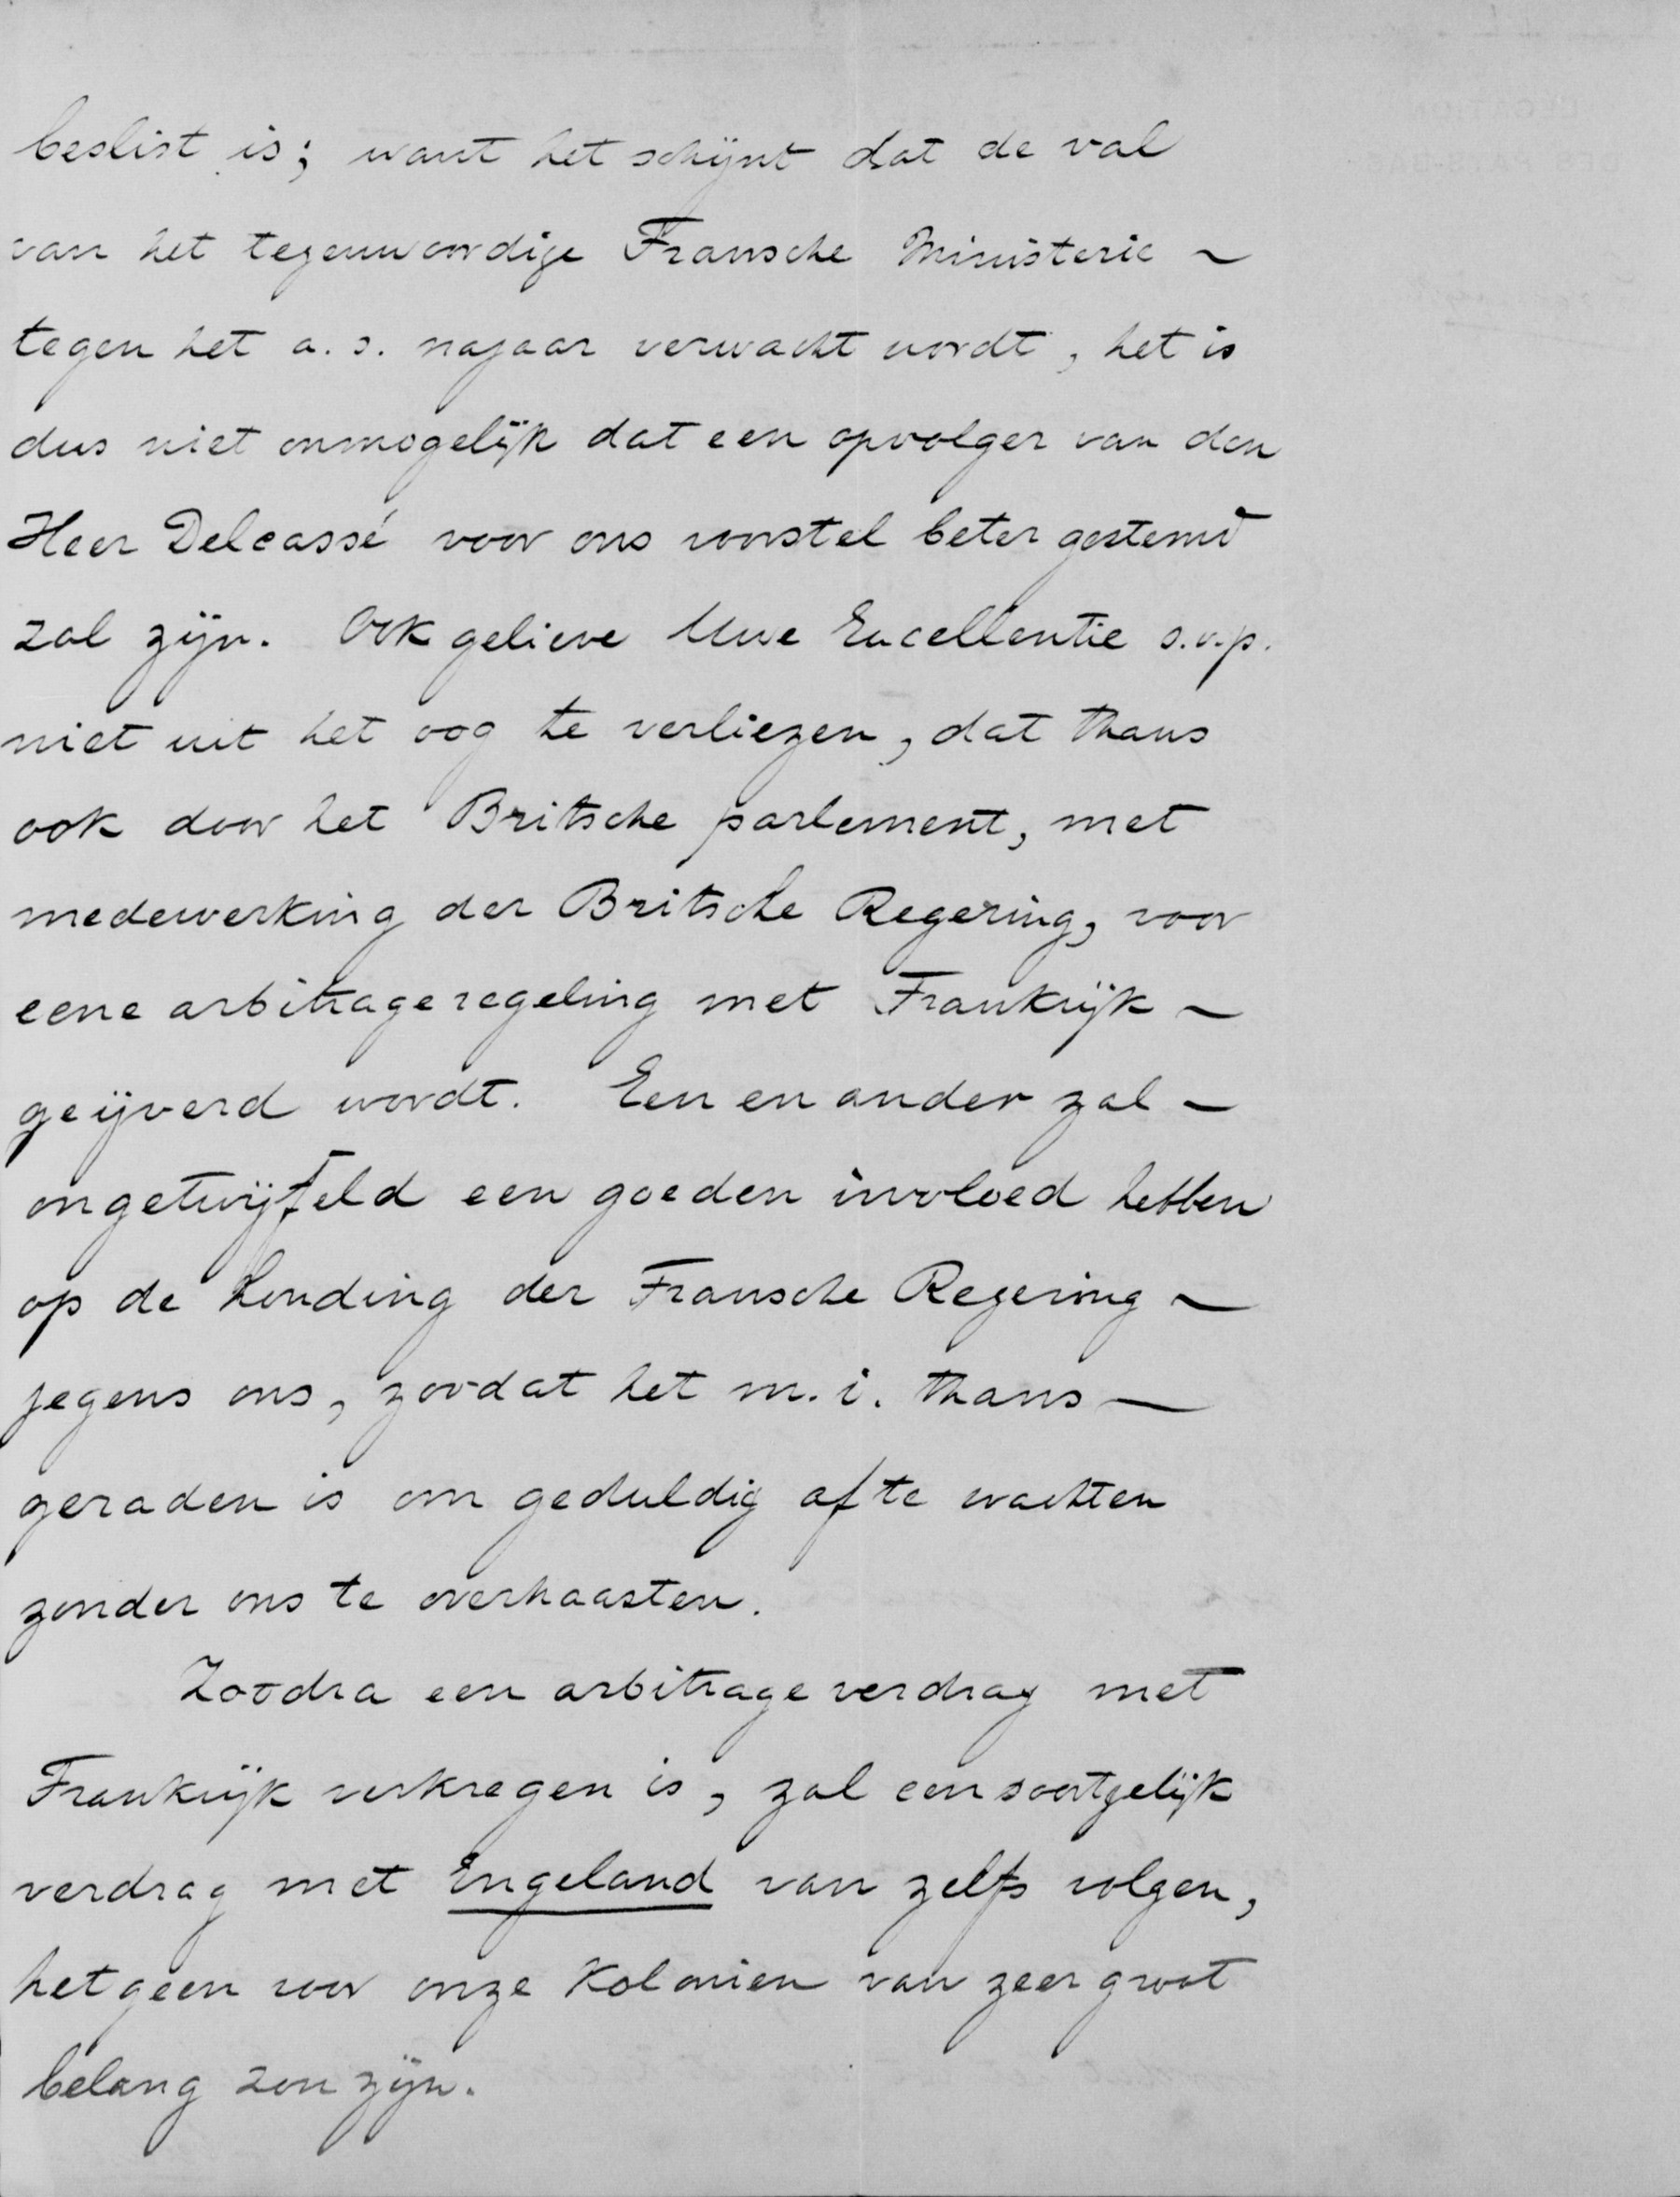 beslist is; want het schijnt dat de val
van het tegenwoordige Fransche Ministerie ~
tegen het a.s. najaar verwacht wordt, het is
dus niet onmogelijk dat een opvolger van den
Heer Delcassé voor ons voorstel beter gestemd
zal zijn. Ook gelieve Uwe Excellentie s.v.p.
niet uit het oog te verliezen, dat thans
ook door het Britsche parlement, met
medewerking der Britsche Regering, voor
eene arbitrageregeling met Frankrijk ~
geijverd wordt. Een en ander zal –
ongetwijfeld een goeden invloed hebben
op de houding der Fransche Regering ~
jegens ons, zoodat het m.i. thans —
geraden is om geduldig af te wachten
zonder ons te overhaasten.
Zoodra een arbitrage verdrag met
Frankrijk verkregen is, zal een soortgelijk
verdrag met Engeland van zelfs volgen,
hetgeen voor onze Kolonien van zeer groot
belang zou zijn.